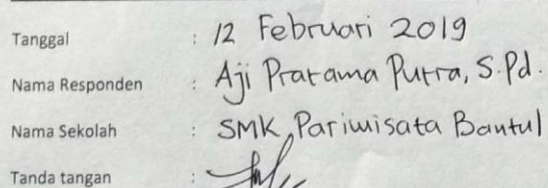 Tanggal : 12 Februari 2019
Nama Responden : Aji Pratama Putra, S.Pd.
Nama Sekolah : SMK Pariwisata Bantul
Tanda tangan :